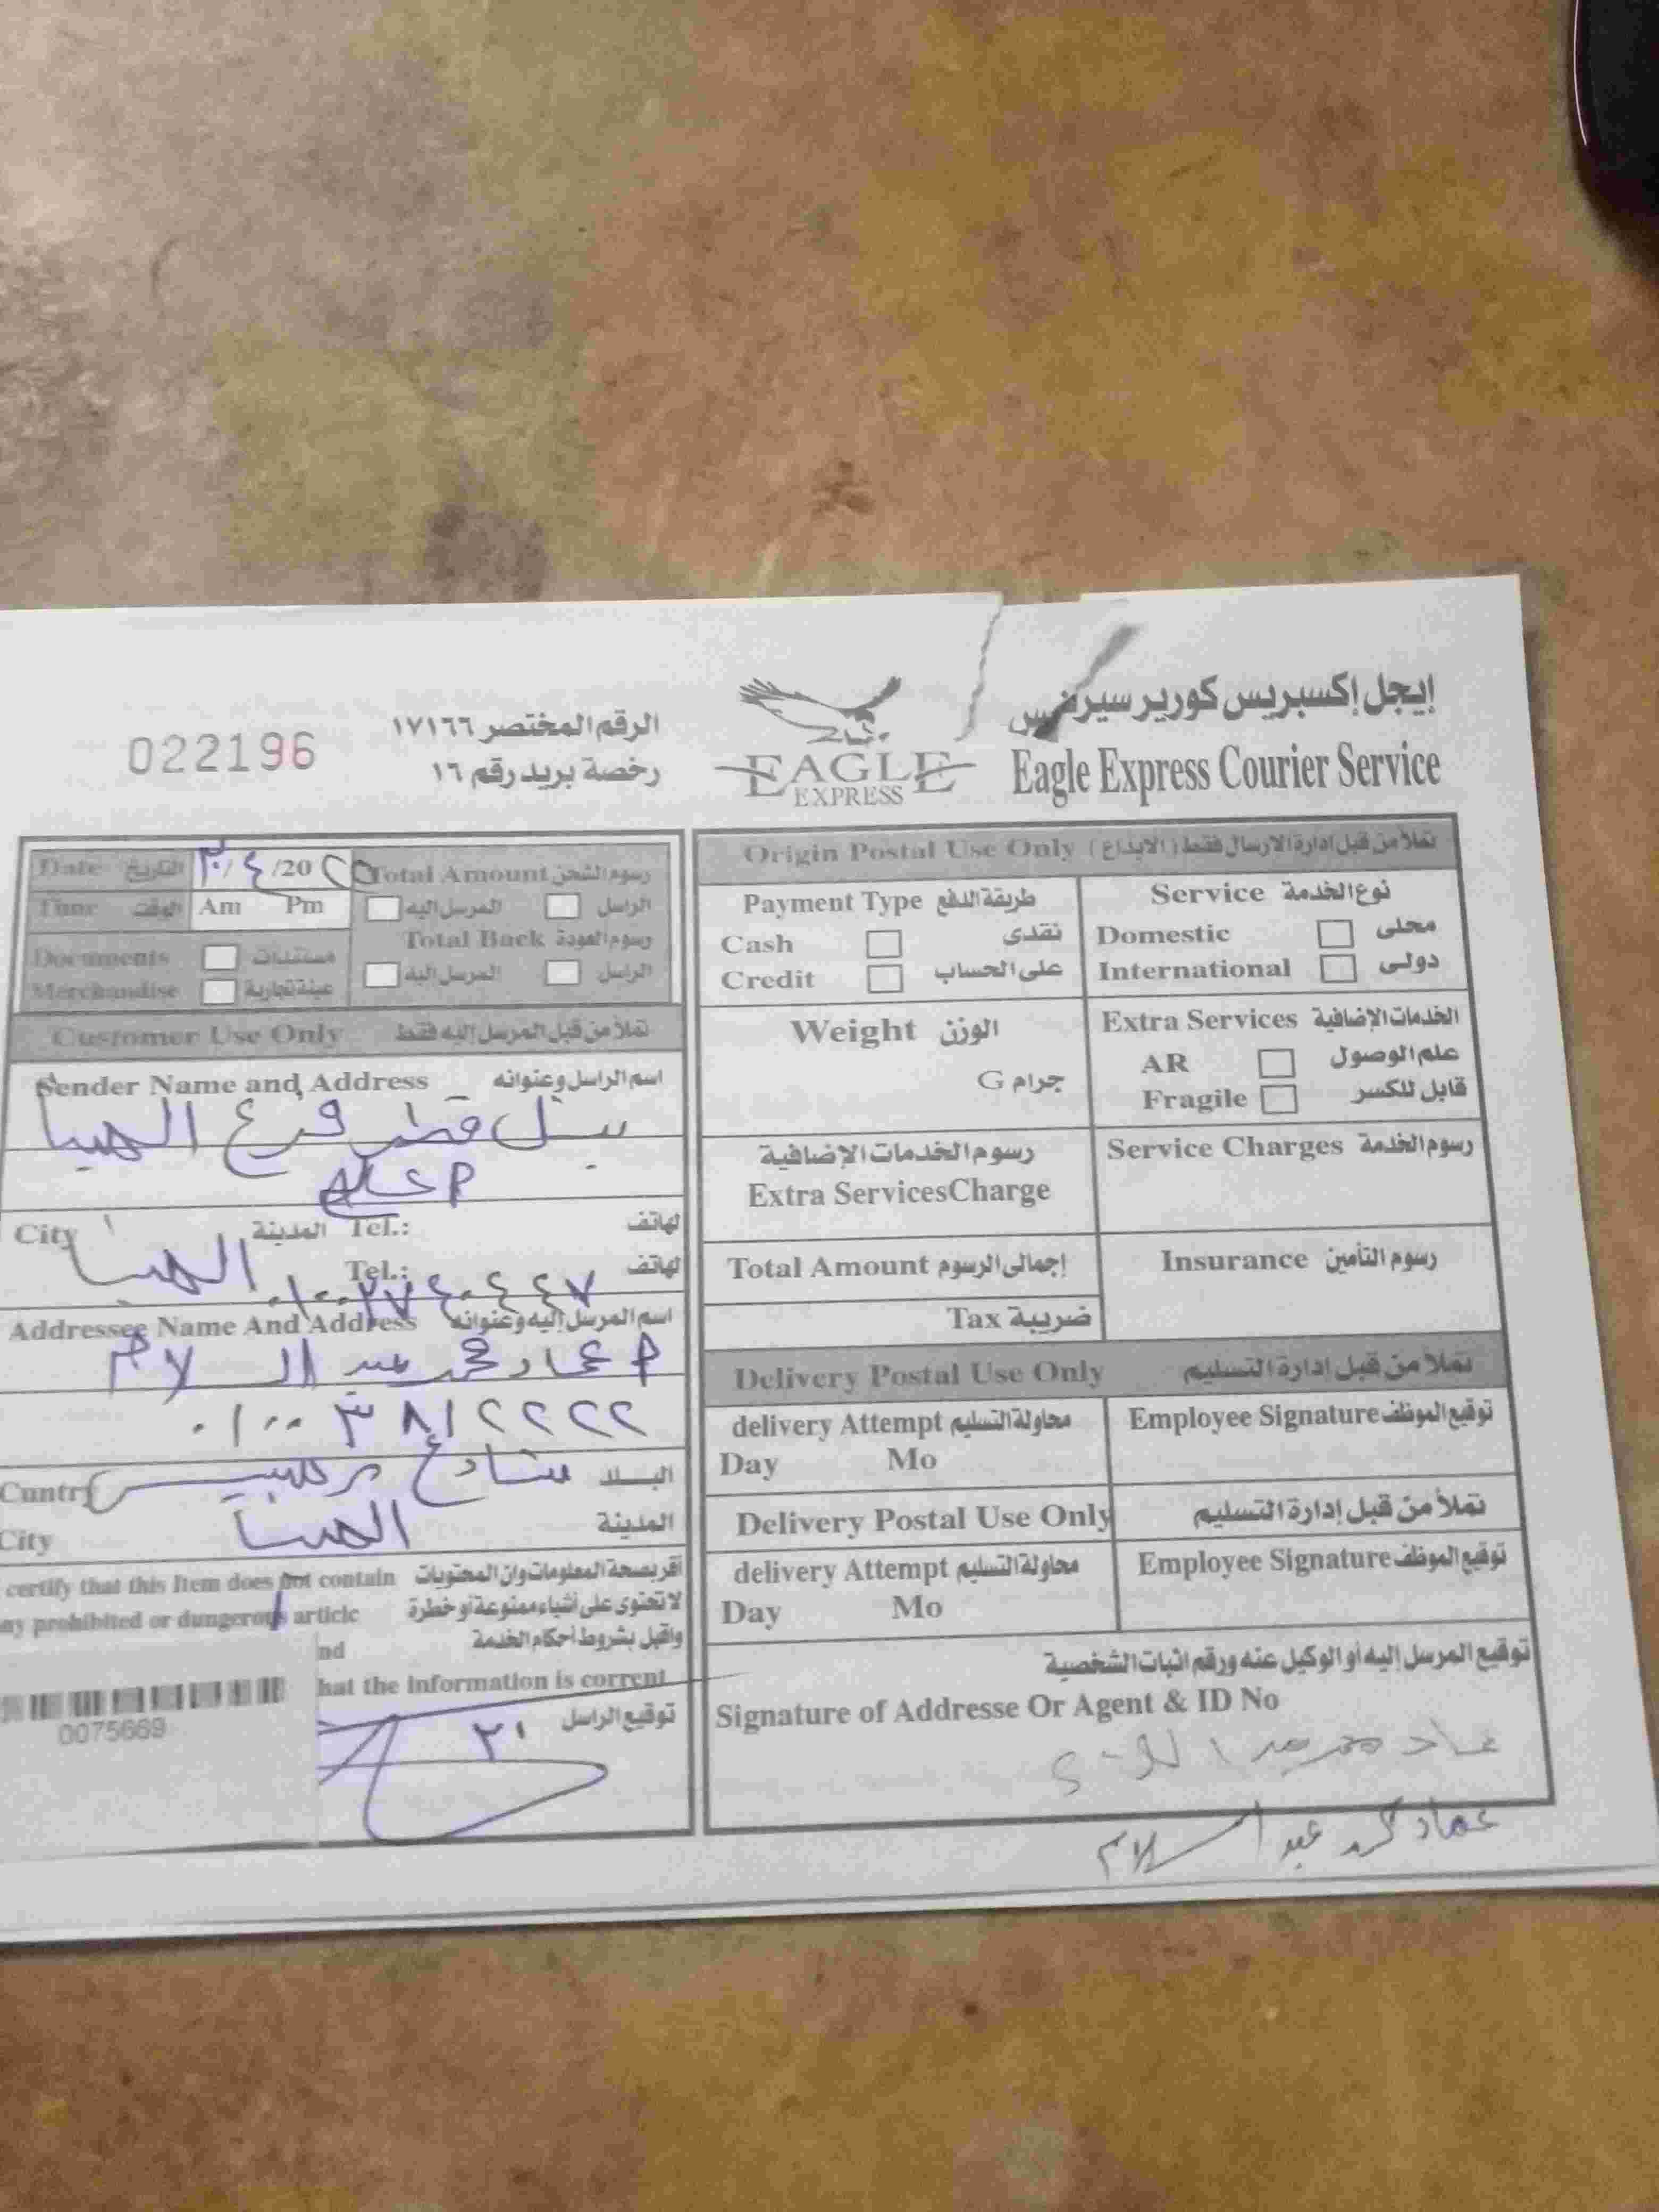 إيجل إكسبريس كورير سيرفس
Eagle Express Courier Service
EAGLE
EXPRESS
الرقم المختصر ١٧١٦٦
رخصة بريد رقم ١٦
022196
Origin Postal Use Only تملأ من قبل إدارة الارسال فقط (الايداع)
Service نوع الخدمة
Domestic محلى
International دولى
Payment Type طريقة الدفع
Cash نقدى
Credit على الحساب
Extra Services الخدمات الإضافية
AR علم الوصول
Fragile قابل للكسر
Weight الوزن
جرام G
Service Charges رسوم الخدمة
رسوم الخدمات الإضافية
Extra ServicesCharge
Insurance رسوم التأمين
Total Amount إجمالى الرسوم
Tax ضريبة
Delivery Postal Use Only تملأ من قبل إدارة التسليم
delivery Attempt محاولة التسليم
Day Mo
Employee Signature توقيع الموظف
Delivery Postal Use Only تملأ من قبل إدارة التسليم
delivery Attempt محاولة التسليم
Day Mo
Employee Signature توقيع الموظف
توقيع المرسل إليه أو الوكيل عنه ورقم اثبات الشخصية
Signature of Addresse Or Agent & ID No
عماد محمد عبد السلام
Date التاريخ /٤ /20
Time الوقت Am Pm
Documents مستندات
Merchandise عينة تجارية
Total Amount رسوم الشحن
الراسل المرسل اليه
Total Back رسوم العودة
الراسل المرسل اليه
Customer Use Only تملأ من قبل المرسل إليه فقط
Sender Name and Address اسم الراسل وعنوانه
قطر فرع
City المدينة Tel.: لهاتف
Tel.: لهاتف
٠١٠٠٢٧٤٠٤٤٧
Addressee Name And Address اسم المرسل إليه وعنوانه
م عماد محمد عبد السلام
٠١٠٠٣٨١٢٢٢٢
Cuntry البلد شارع
City المدينة
certify that this Item does not contain أقر بصحة المعلومات وان المحتويات
ny prohibited or dangerous article لا تحتوى على أشياء ممنوعة أو خطرة
nd واقبل بشروط أحكام الخدمة
hat the information is corrent
توقيع الراسل
0075669